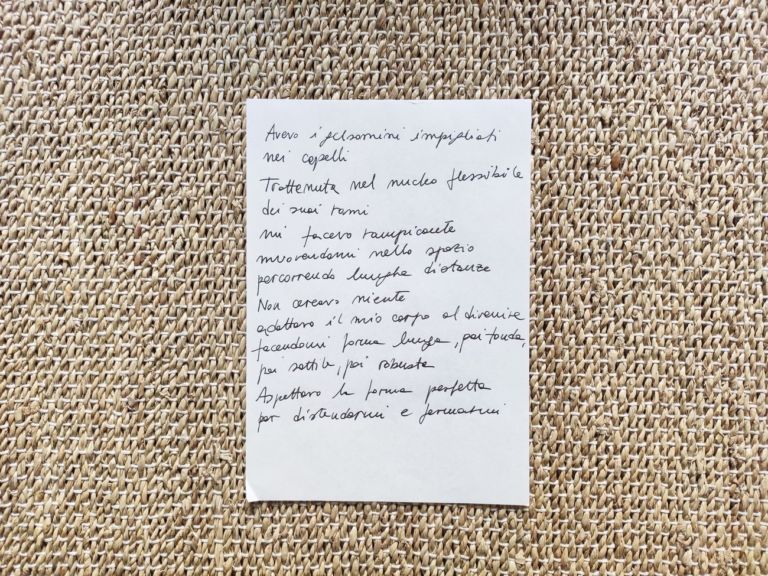 Avevo i gelsomini impigliati
nei capelli
Trattenuta nel nucleo flessibile
dei suoi rami
mi facevo rampicante
muovendomi nello spazio
percorrendo lunghe distanze
Non cercavo niente
adattavo il mio corpo al divenire
facendomi forma lunga, poi tonda,
poi sottile, poi robusta
Aspettavo la forma perfetta
per distendermi e fermarmi